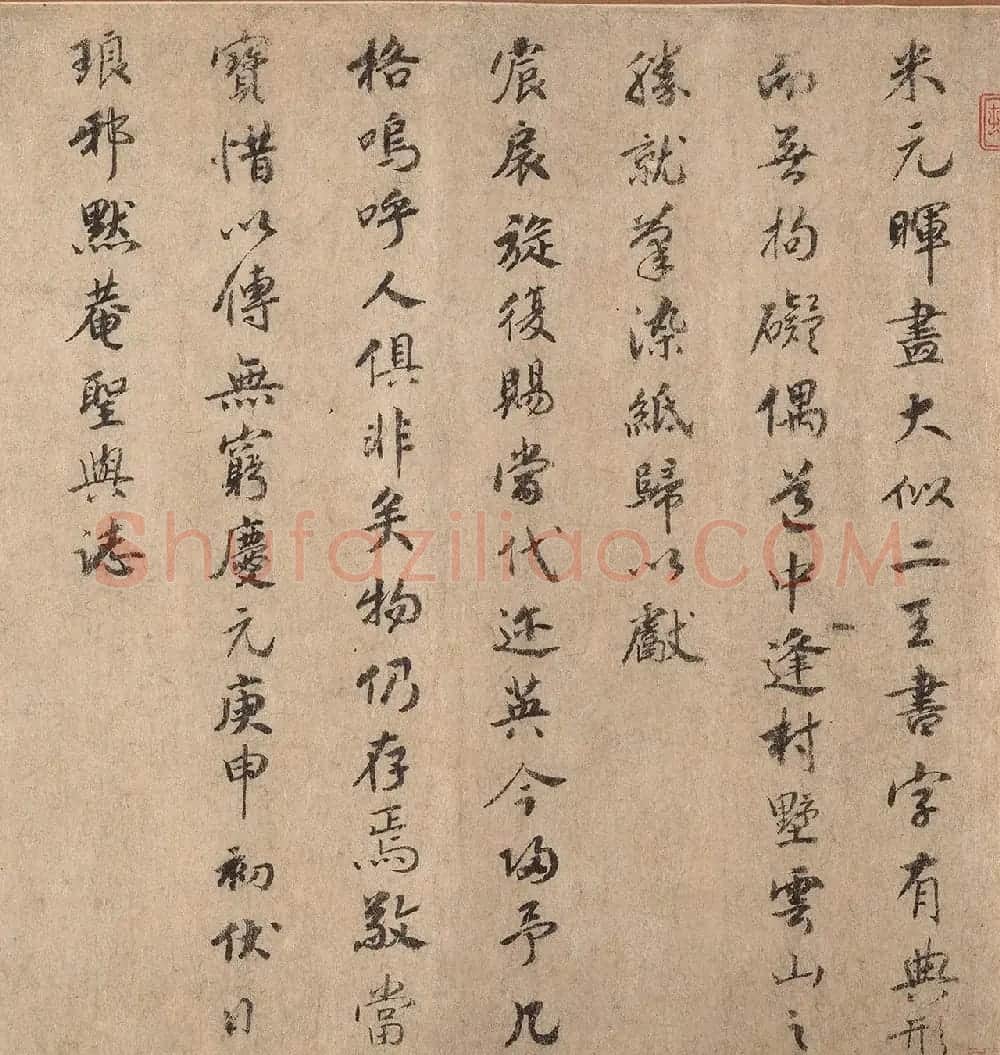 米元暉畫大似二王書字有典形
而無拘礙偶道中逢村墅雲山之
勝就筆染紙歸以獻
宸扆旋復賜當代近英今歸予几
格嗚呼人俱非矣物仍存焉敬當
寶惜以傳無窮慶元庚申初伏日
琅邪默菴聖與誌
Shufaziliao.COM